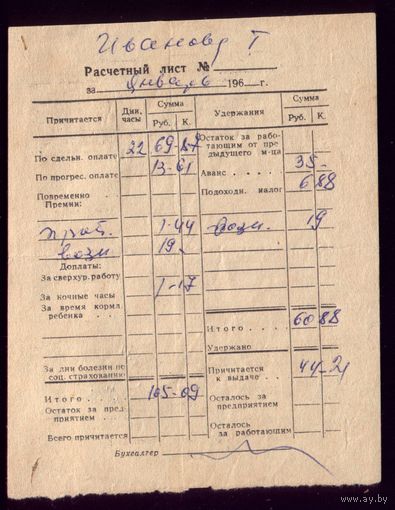 Иванова Т
Расчетный лист №
за январь 196 г.
Причитается Дни, часы Сумма Руб. К. Удержания Сумма Руб. К.
По сдельн. оплате 22 69-87 Остаток за работающим от предыдущего м-ца
По прогрес. оплате 13-61 Аванс . . . . 35-
Повременно Подоходн. налог 6 88
Премии:
1-44 19
19-
Доплаты:
За сверхур. работу 1-17
За ночные часы
За время кормл. ребенка . . . Итого . . . . 60 88
Удержано
За дни болезни по соц. страхованию Причитается к выдаче . . 44-21
Итого . . . . 105-09 Осталось за предприятием
Остаток за предприятием . . . Осталось за работающим
Всего причитается
Бухгалтер
https://ay.by